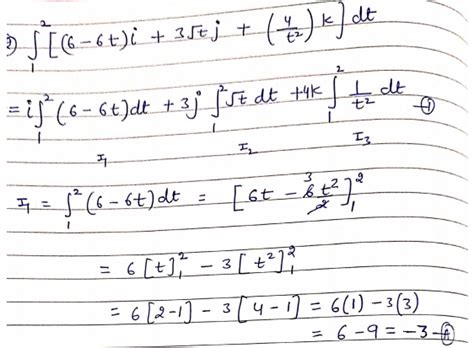 2) ∫₁² [(6-6t)i + 3√t j + (4/t²) k] dt
= i ∫₁² (6-6t)dt + 3j ∫₁² √t dt + 4k ∫₁² 1/t² dt -①
I₁ I₂ I₃
I₁ = ∫₁² (6-6t)dt = [6t - 6̸³t²/2̸]₁²
= 6[t]₁² - 3[t²]₁²
= 6[2-1] - 3[4-1] = 6(1) - 3(3)
= 6 - 9 = -3 -Ⓐ